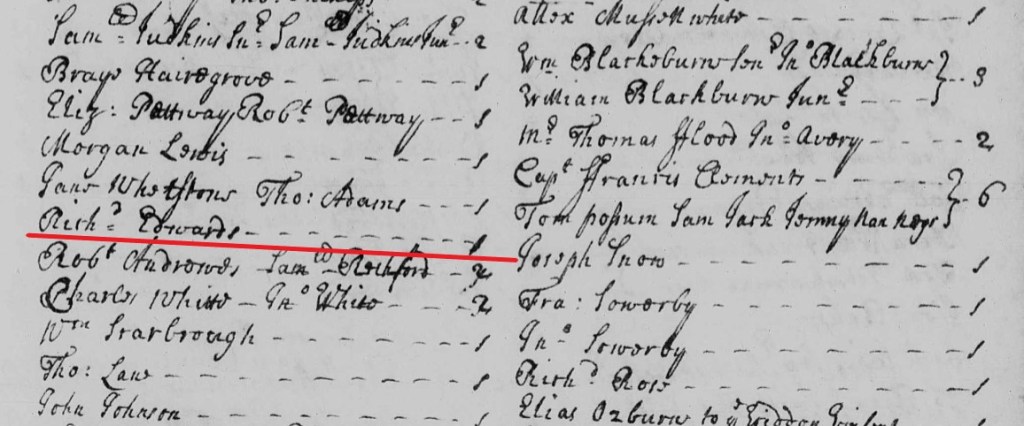 Sam:ll Judkins Sn:r Sam:ll Judkins Jun:r - - 2
Brays Hairegrove - - - - - - 1
Eliz: Pettway Rob:t Pettway - - - 1
Morgan Lewis - - - - - - - 1
Jane Whetstone Tho: Adams - - - 1
Rich:d Edwards - - - - - - - - 1
Rob:t Andrewes Sam:ll Rochford - 2
Charles White - Jn:o White - - - - 2
W:m Scarbrough - - - - - - - 1
Tho: Lane - - - - - - - - - 1
John Johnson - - - - - - - - 1
Allex Mussellwhite - - - - - - 1
Wm Blackeburne Sen:r Jn:o Blackburne } - - 3
William Blackburn Jun:r - - -
M:r Thomas fflood Jn:o Avery - - - - 2
Cap:t ffrancis Clements - - - - - } 6
Tom possum Sam Jack Jemmy Nan negr
Joseph Snow - - - - - - - - 1
Fra: Sowerby - - - - - - - 1
Jn:o Sowerby - - - - - - - - 1
Rich:d Rose - - - - - - - - - 1
Elias Ozburne to y:e